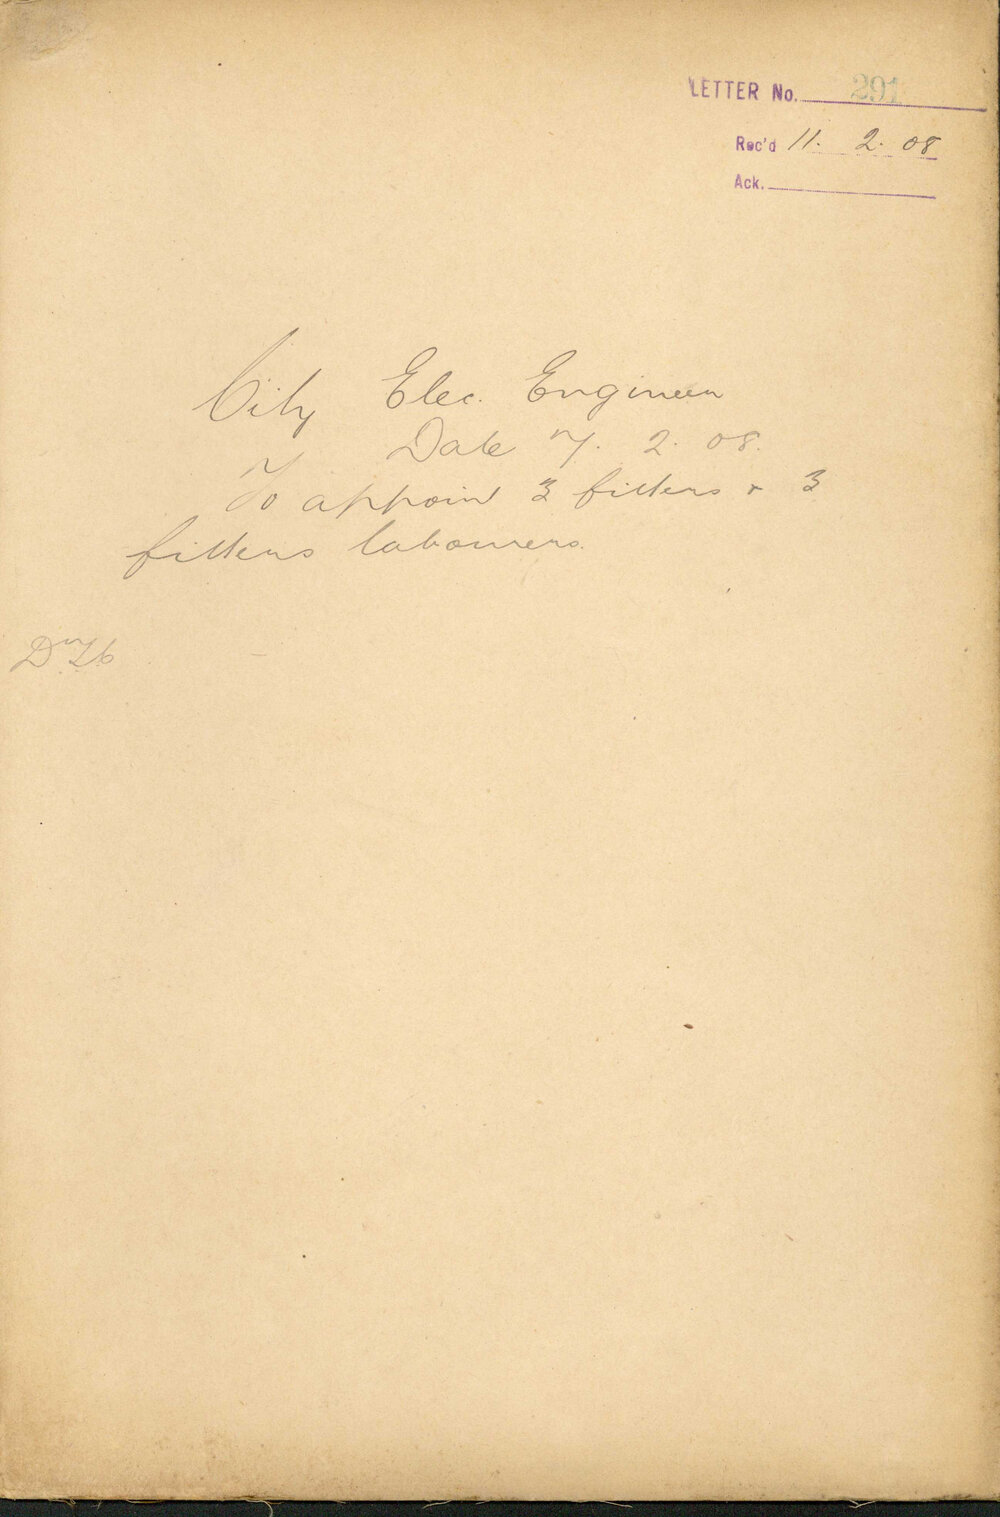 LETTER No. 291
Rec'd 11. 2. 08
Ack.
City Elec. Engineer
Date 7. 2. 08.
To appoint 3 fitters & 3
fitters labourers.